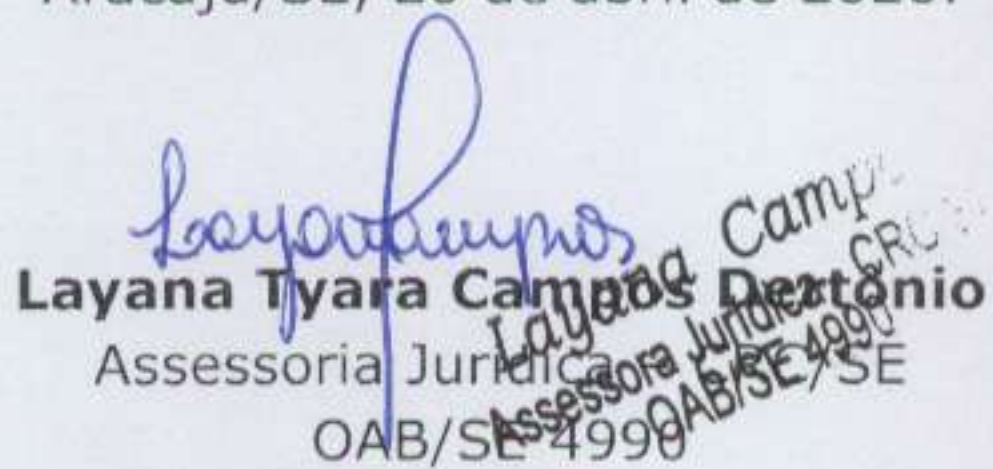 Layana Campos
Layana Tyara Campos Dertônio
Assessoria Jurídica
SE
OAB/SE 4990
Layana Camp
Assessora Jurídica CRC
OAB/SE 4990